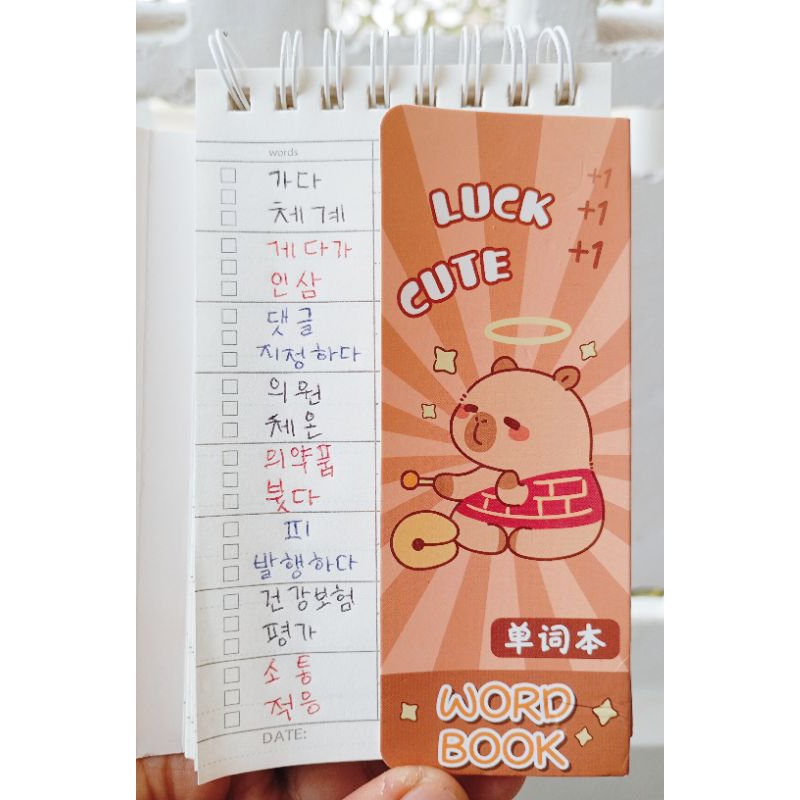 words
가다
체계
게다가
인삼
댓글
지정하다
의원
체온
의약품
붓다
피
발행하다
건강보험
평가
소통
적응
DATE:
LUCK
CUTE
+1
+1
+1
单词本
WORD
BOOK